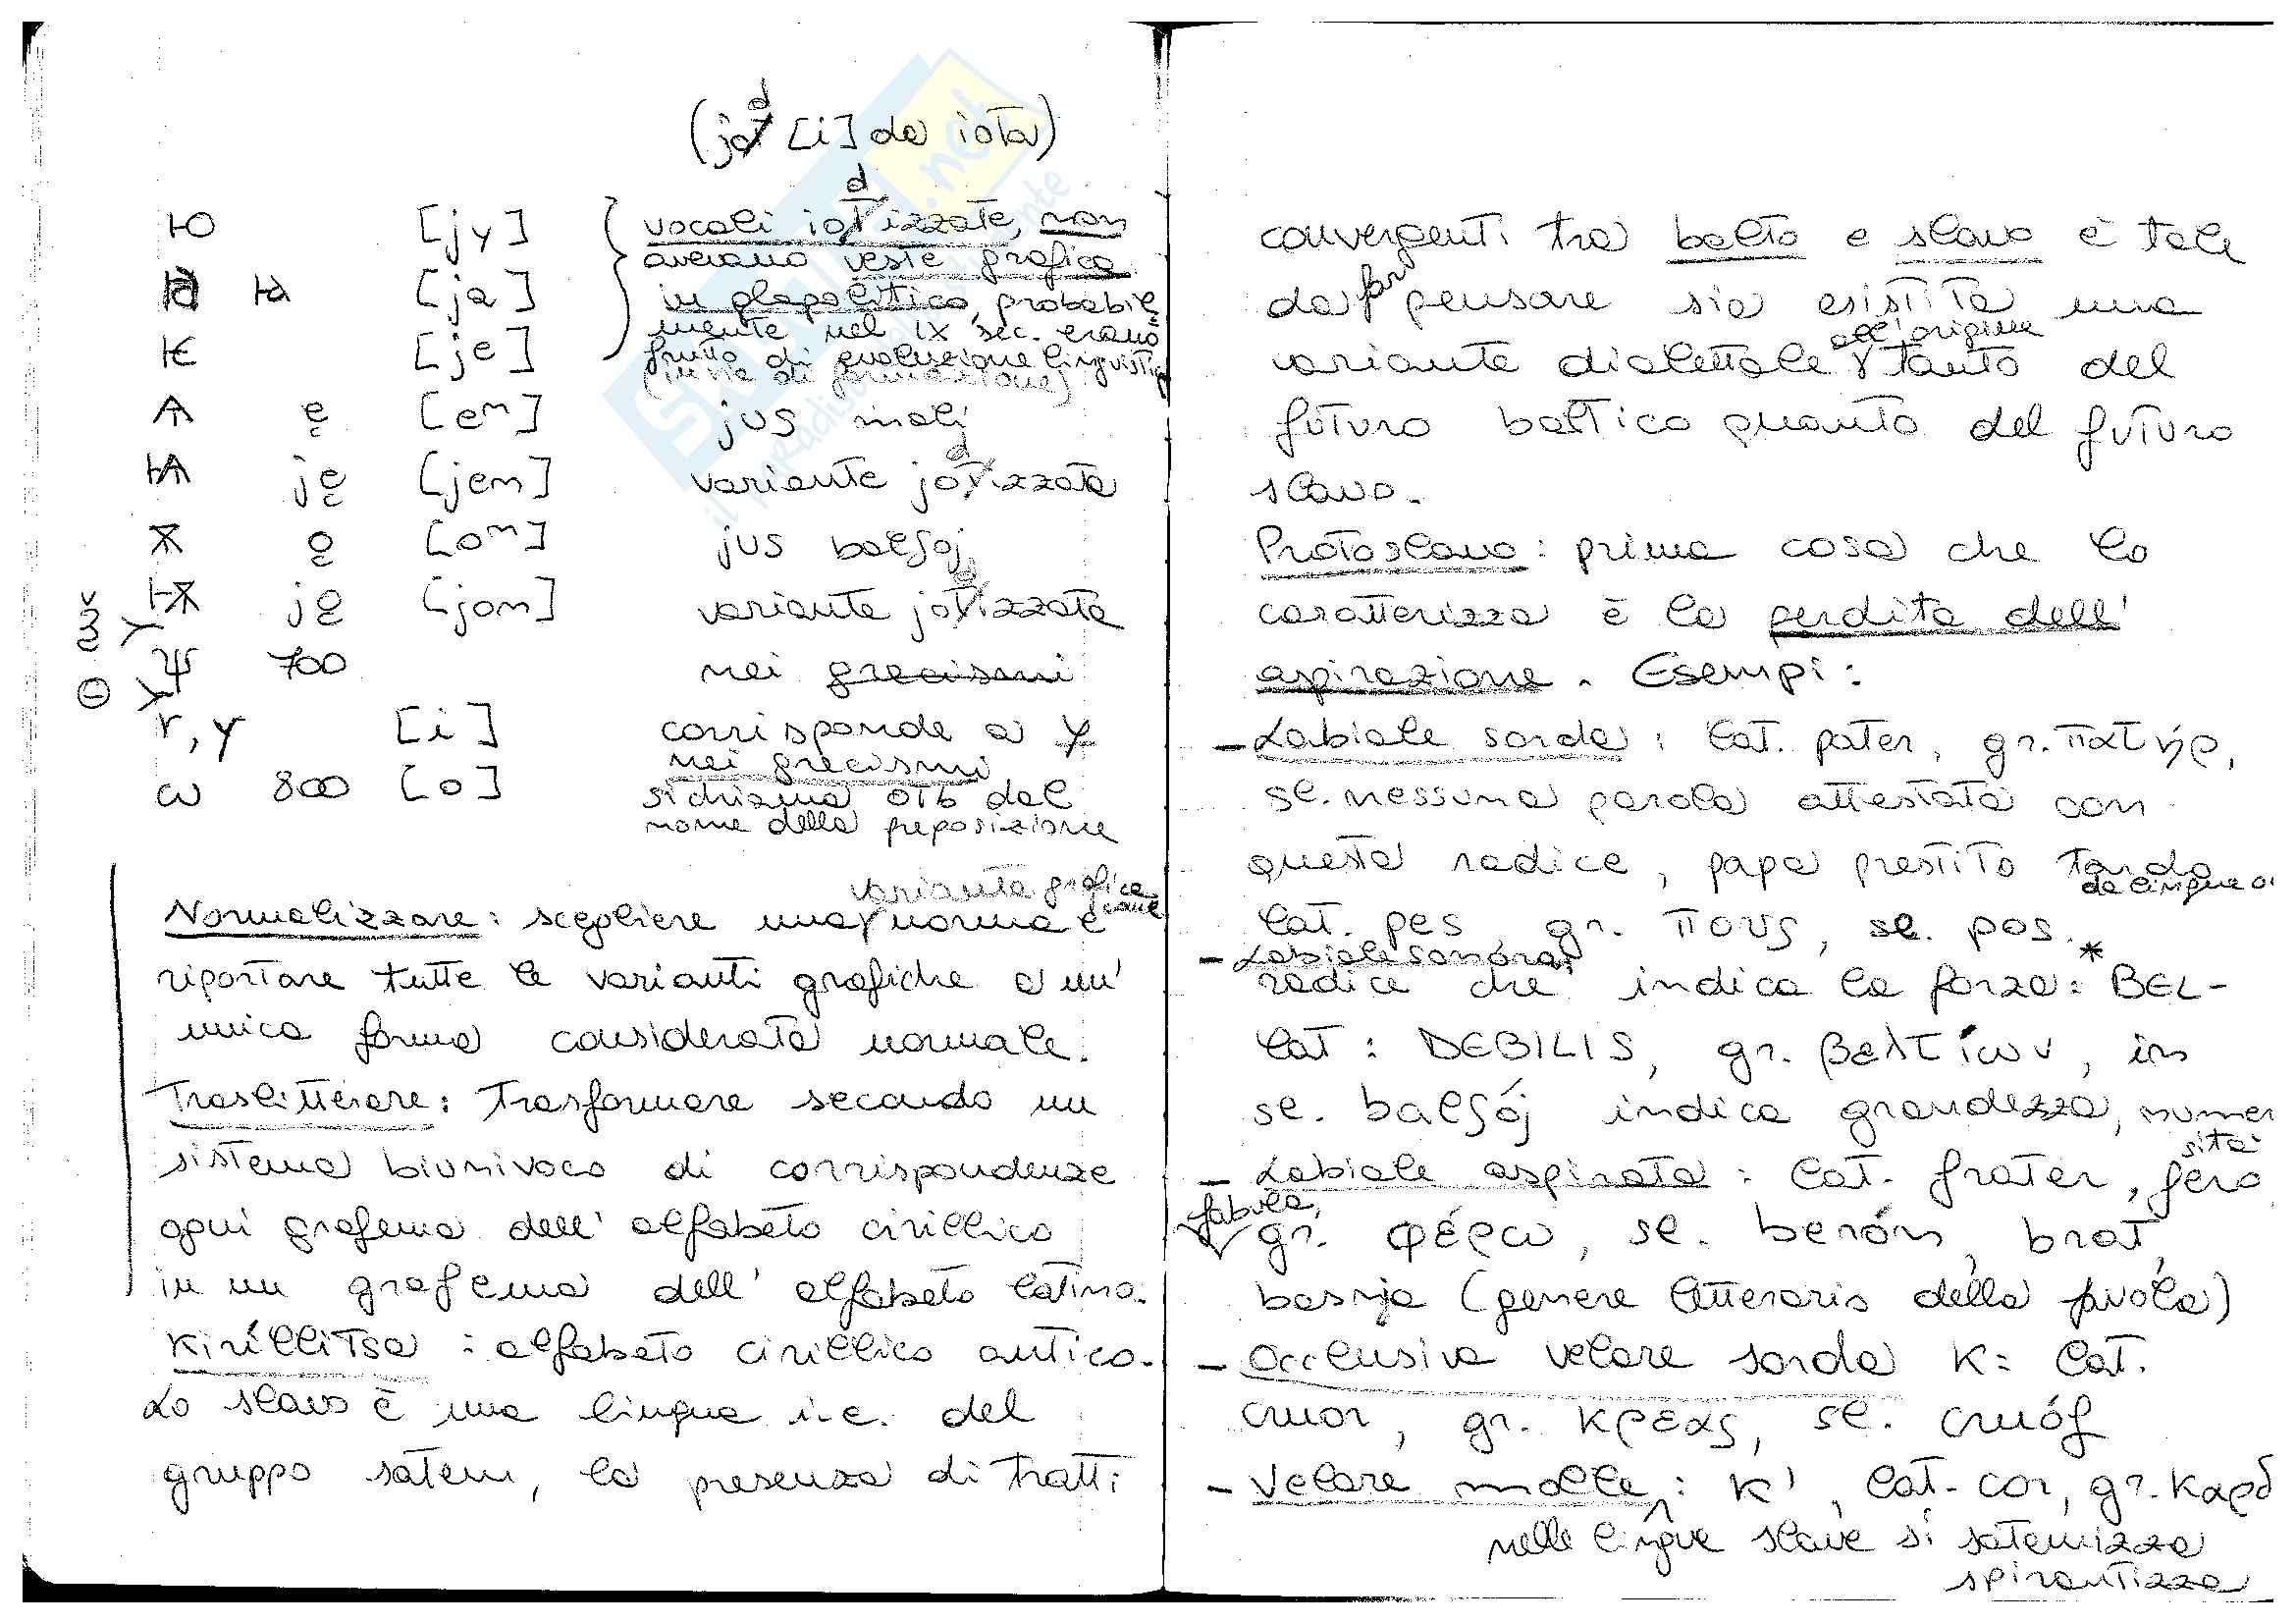 (jod [i] da iota)
Ю [jy] vocali iodizzate, non
Ꙗ [ja] avevano veste grafica
in glagolitico, probabil
Ѥ [je] mente nel IX sec. erano
frutto di evoluzione linguistica
(in via di formazione)
Ѧ ę [en] jus malj
Ѩ ję [jen] variante jodizzata
Ѫ ǫ [on] jus balʃoj
Ѭ jǫ [jon] variante jodizzata
ѯ
Ψ 700 nei grecismi
θ
r, y [i] corrisponde a y
nei grecismi
ω 800 [o] si chiama otb dal
nome della preposizione
variante grafica
Normalizzare: scegliere una norma e
riportare tutte le varianti grafiche a un'
unica forma considerata normale.
Traslitterare: trasformare secondo un
sistema biunivoco di corrispondenze
ogni grafema dell'alfabeto cirillico
in un grafema dell'alfabeto latino.
Kiríllitsa: alfabeto cirillico antico.
Lo slavo è una lingua i.e. del
gruppo satem, la presenza di tratti
convergenti tra balto e slavo è tale
da far pensare sia esistita una
variante dialettale all'origine tanto del
futuro baltico quanto del futuro
slavo.
Protoslavo: prima cosa che lo
caratterizza è la perdita dell'
aspirazione. Esempi:
- Labiale sorda: lat. pater, gr. πατήρ,
sl. nessuna parola attestata con
questa radice, papa prestito tardo
da lingue
lat. pes, gr. πους, sl. pos.
- Labiale sonora:
radice che indica la forza: *BEL-
lat: DEBILIS, gr. βελτίων, in
sl. balʃój indica grandezza, numer
sità
- Labiale aspirata: lat. frater, fero,
fabula,
gr. φέρω, sl. berón, brat,
basnja (genere letterario della favola)
- Occlusiva velare sorda K: lat.
cruor, gr. κρεας, sl. cruóf
- Velare molle: K', lat. cor, gr. καρδ
nelle lingue slave si satemizza
spirantizza